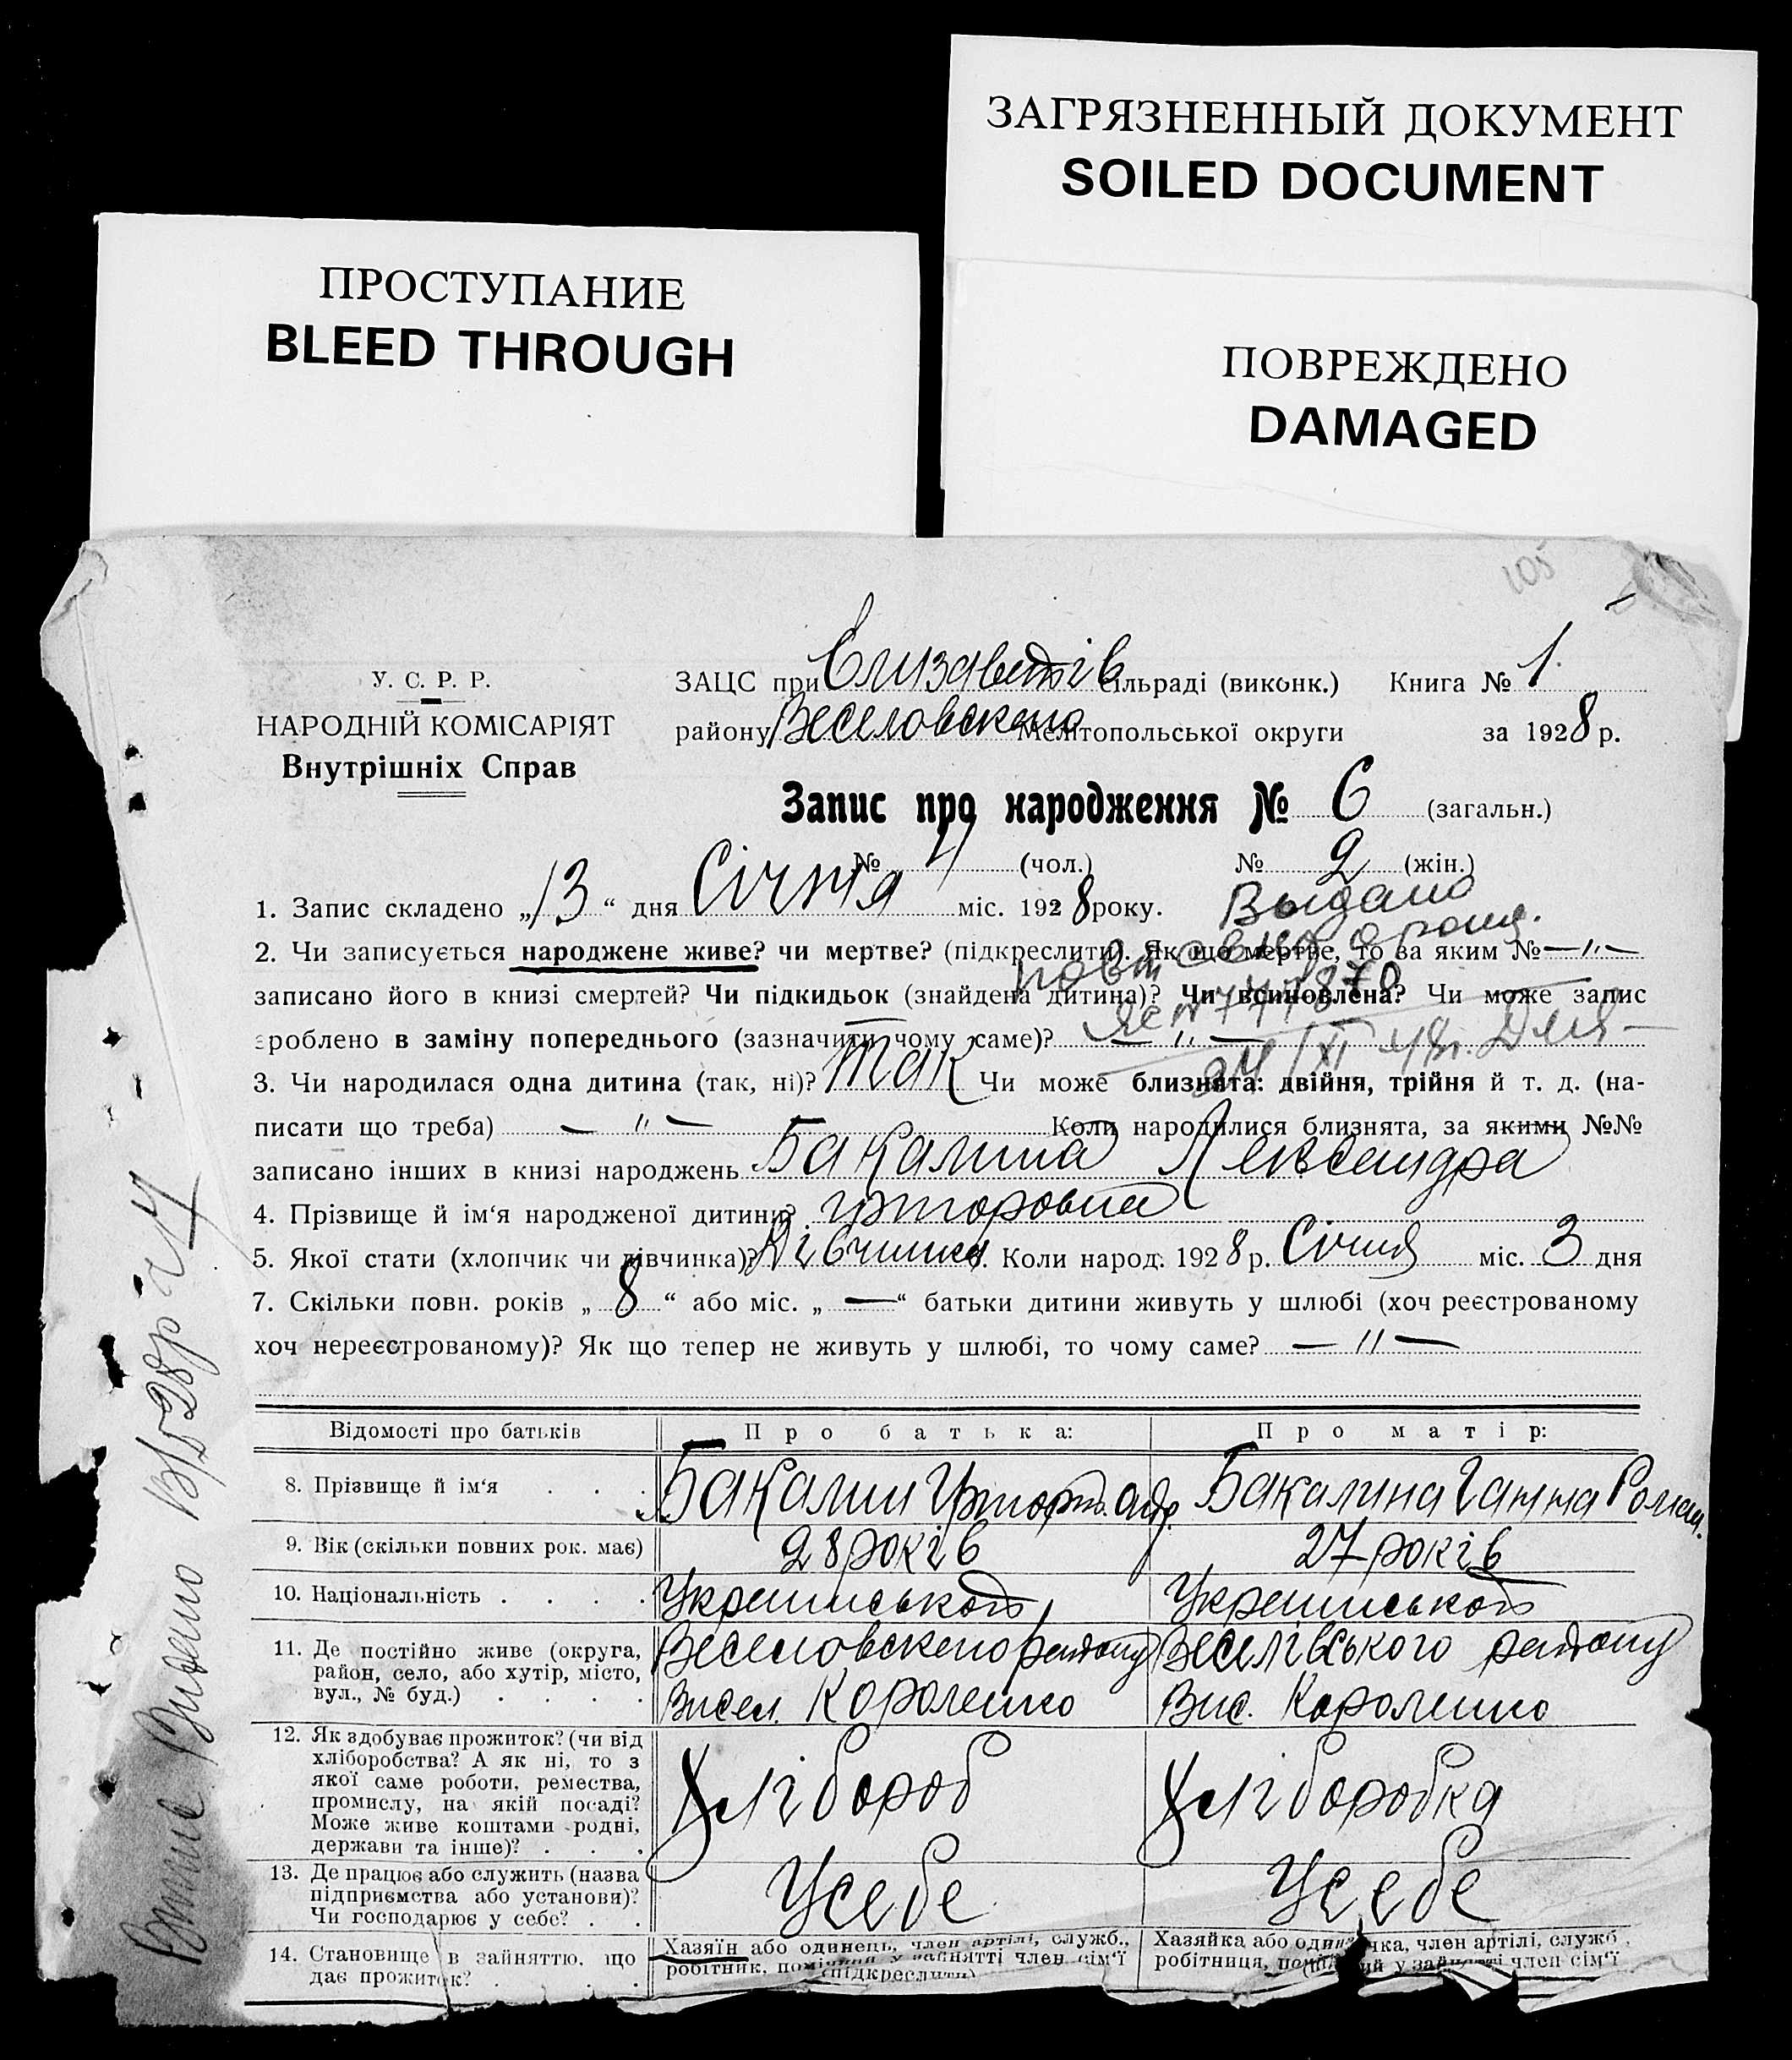 ЗАГРЯЗНЕННЫЙ ДОКУМЕНТ
SOILED DOCUMENT
ПРОСТУПАНИЕ
BLEED THROUGH
ПОВРЕЖДЕНО
DAMAGED
105
У. С. Р. Р.
НАРОДНІЙ КОМІСАРІЯТ
Внутрішніх Справ
ЗАЦС при Єлизаветів сільраді (виконк.) Книга № 1.
району Веселовского Мелітопольської округи за 1928 р.
Запис про народження № 6 (загальн.)
№ 4 (чол.) № 2 (жін.)
1. Запис складено „13“ дня Січня міс. 1928 року.
Выдано
2. Чи записується народжене живе? чи мертве? (підкреслити). Як що мертве, то за яким № — " —
записано його в книзі смертей? Чи підкидьок (знайдена дитина)? Чи всиновлена? Чи може запис
зроблено в заміну попереднього (зазначити чому саме)? — " —
3. Чи народилася одна дитина (так, ні)? Так Чи може близнята: двійня, трійня й т. д. (на-
писати що треба) — " — Коли народилися близнята, за якими №№
записано інших в книзі народжень Бакалина Лександра
4. Прізвище й ім'я народженої дитини?
5. Якої стати (хлопчик чи дівчинка)? Дівчинка. Коли народ. 1928 р. Січня міс. 3 дня
7. Скільки повн. років „8“ або міс. „—“ батьки дитини живуть у шлюбі (хоч реєстрованому
хоч нереєстрованому)? Як що тепер не живуть у шлюбі, то чому саме? — " —
Відомості про батьків Про батька: Про матір:
8. Прізвище й ім'я . . . Бакалин Бакалина Ганна Роман.
9. Вік (скільки повних рок. має) 28 років 27 років
10. Національність . . . . Українського Українського
11. Де постійно живе (округа, район, село, або хутір, місто, вул., № буд.) . . . .
Веселовского району Веселівського району
Висел. Короленко Вис. Короленко
12. Як здобуває прожиток? (чи від
хліборобства? А як ні, то з
якої саме роботи, ремества,
промислу, на якій посаді?
Може живе коштами родні,
держави та інше)? . . .
Хлібороб Хліборобка
13. Де працює або служить (назва
підприємства або установи)?
Чи господарює у себе? . .
У себе У себе
14. Становище в зайняттю, що
дає прожиток? . . . .
Хазяїн або одинець, член артілі, служб.,
робітник, помічний у зайнятті член сім'ї
(підкреслити)
Хазяйка або одиначка, член артілі, служб.,
робітниця, помічний у зайнятті член сім'ї